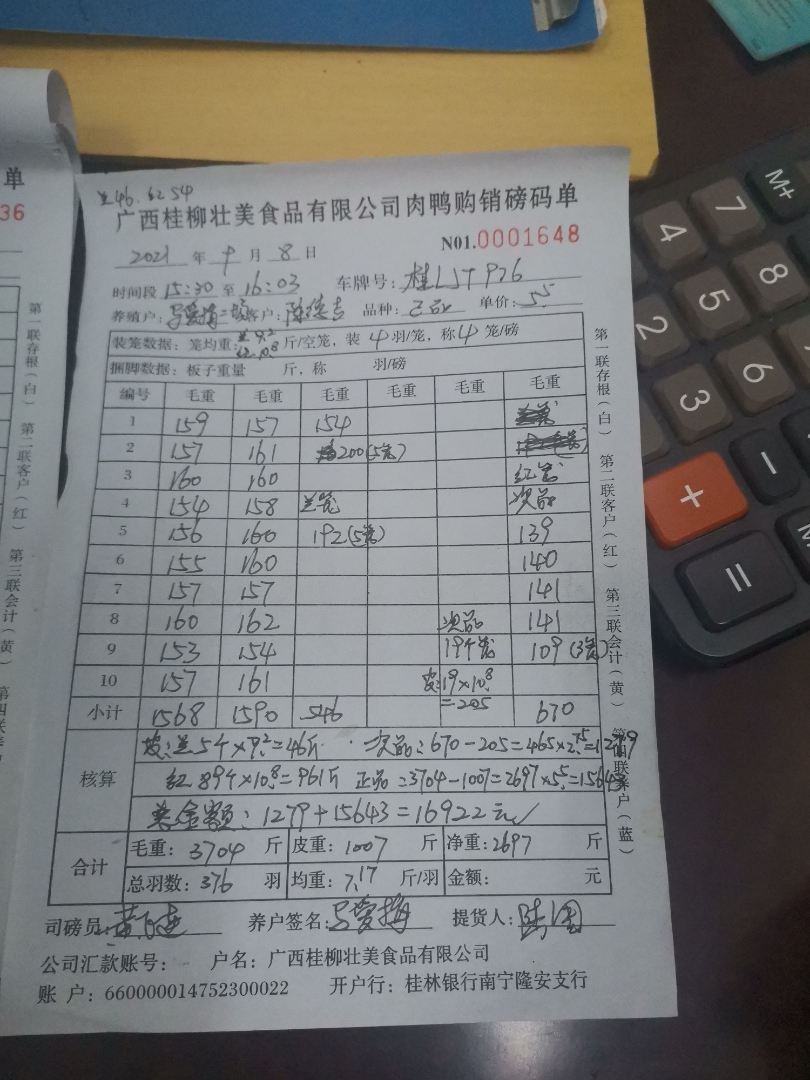 单
36
兰46. 62 54
广西桂柳壮美食品有限公司肉鸭购销磅码单
NO1.0001648
2021 年 9 月 8 日
时间段 15:30 至 16:03 车牌号: 桂
养殖户: 客户: 品种: 单价: 5.5
装笼数据: 笼均重: 兰9.2 红10.8 斤/空笼, 装 4 羽/笼, 称 4 笼/磅
捆脚数据: 板子重量 斤, 称 羽/磅
编号 毛重 毛重 毛重 毛重 毛重 毛重
1 159 157 154
2 157 161 200(5笼)
3 160 160 红笼
4 154 158 兰笼 次品
5 156 160 192(5笼) 139
6 155 160 140
7 157 157 141
8 160 162 次品 141
9 153 154 19个笼 109(3笼)
10 157 161 皮:19×10.8
小计 1568 1590 546 =205 670
核算
皮:兰5个×9.2=46斤 次品:670-205=465×2.75=1279
红89个×10.8=961斤 正品:3704-1007=2697×5.5=15643
总金额: 1279+15643=16922元
合计
毛重: 3704 斤 皮重: 1007 斤 净重: 2697 斤
总羽数: 376 羽 均重: 7.17 斤/羽 金额: 元
司磅员: 养户签名: 提货人:
公司汇款账号: 户名: 广西桂柳壮美食品有限公司
账 户: 660000014752300022 开户行: 桂林银行南宁隆安支行
第一联存根(白) 第二联客户(红) 第三联会计(黄) 第四联养户(蓝)
第一联存根(白) 第二联客户(红) 第三联会计(黄) 第四联
M+
7
4
8
5
2
6
3
+
−
=